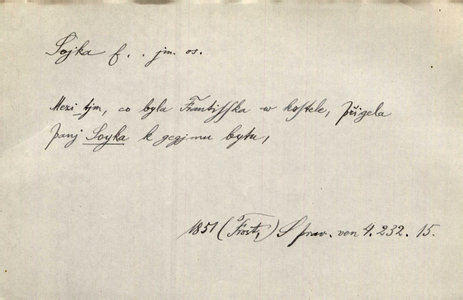 Sojka f. . jm. os.
Mezi tjm, co byla Frantisska w kostele, přigela
panj Soyka k gegjmu bytu,
1851 (Šrost,) S prav. ven 4. 232. 15.